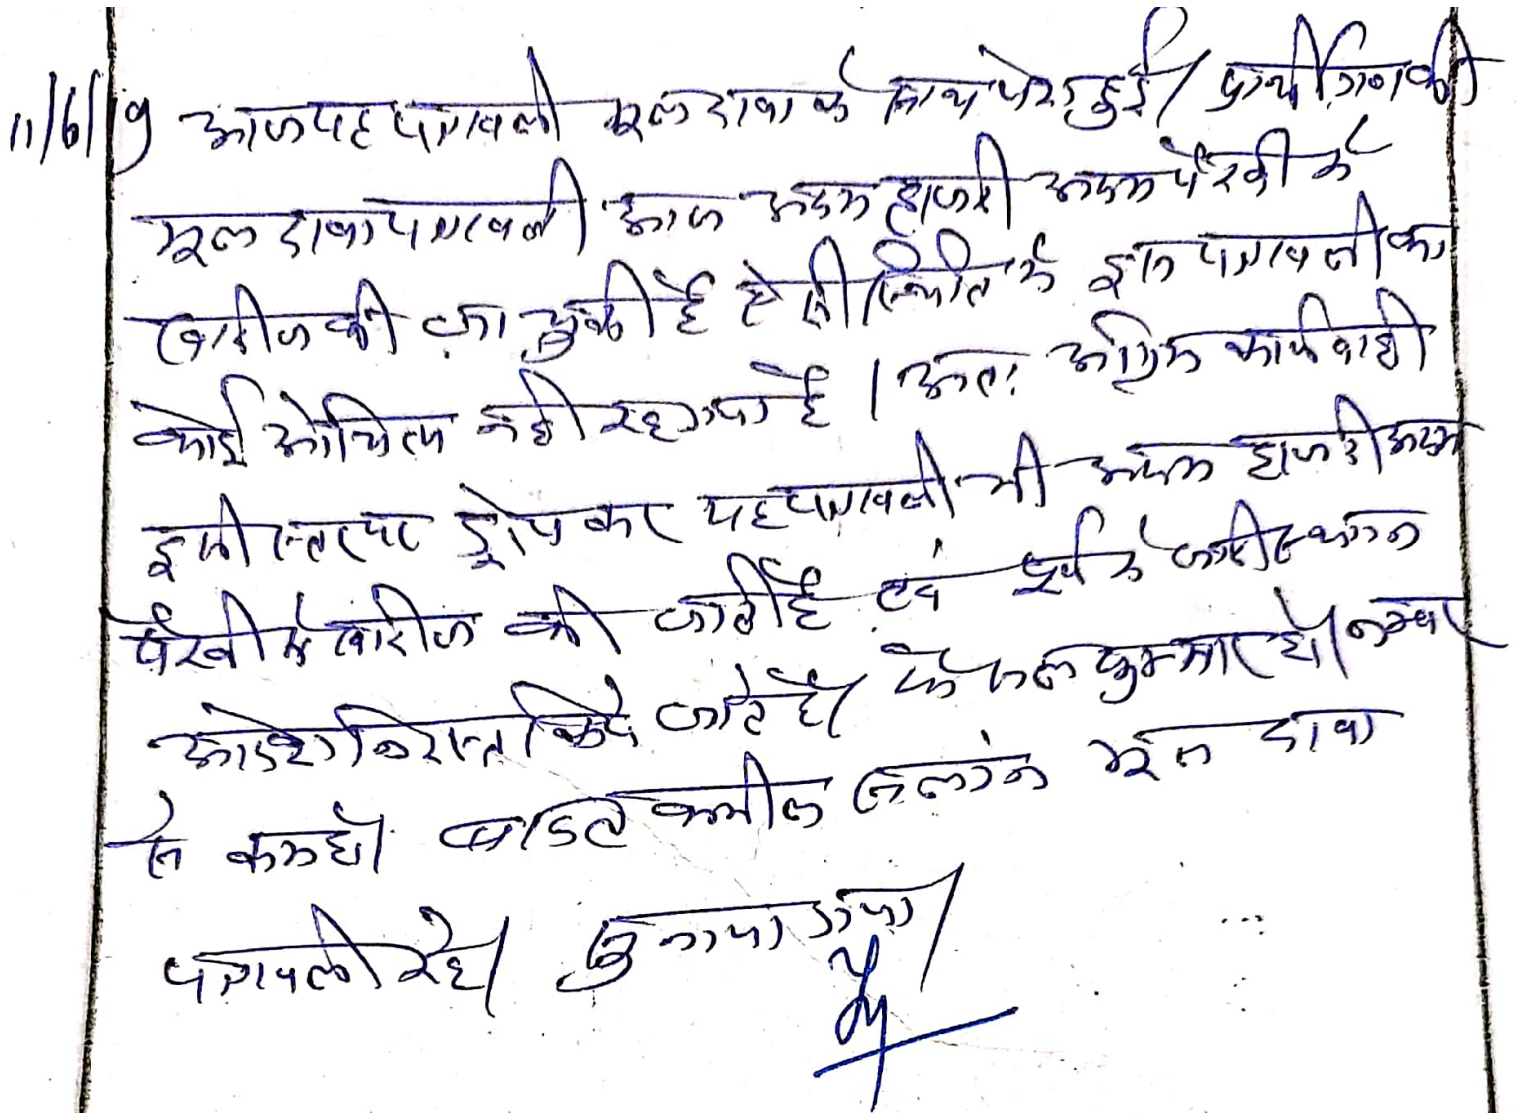 11/6/19 आज यह पत्रावली मूल दावा के साथ पेश हुई। प्रार्थीगण की
मूल दावा पत्रावली आज अदम हाजरी अदम पैरवी में
खारीज की जा चुकी है ऐसी स्थिति में इस पत्रावली का
कोई औचित्य नही रह गया है। अतः अग्रिम कार्यवाही
इसी स्तर पर ड्रोप कर यह पत्रावली भी अदम हाजरी अदम
पैरवी में खारीज की जाती है एवं पूर्व में जारी स्थगन
आदेश निरस्त किये जाते है। फैसल शुमार हो। नम्बर
से कम हो। बाद तकमील संलग्न मूल दावा
पत्रावली रहे। सुनाया गया।